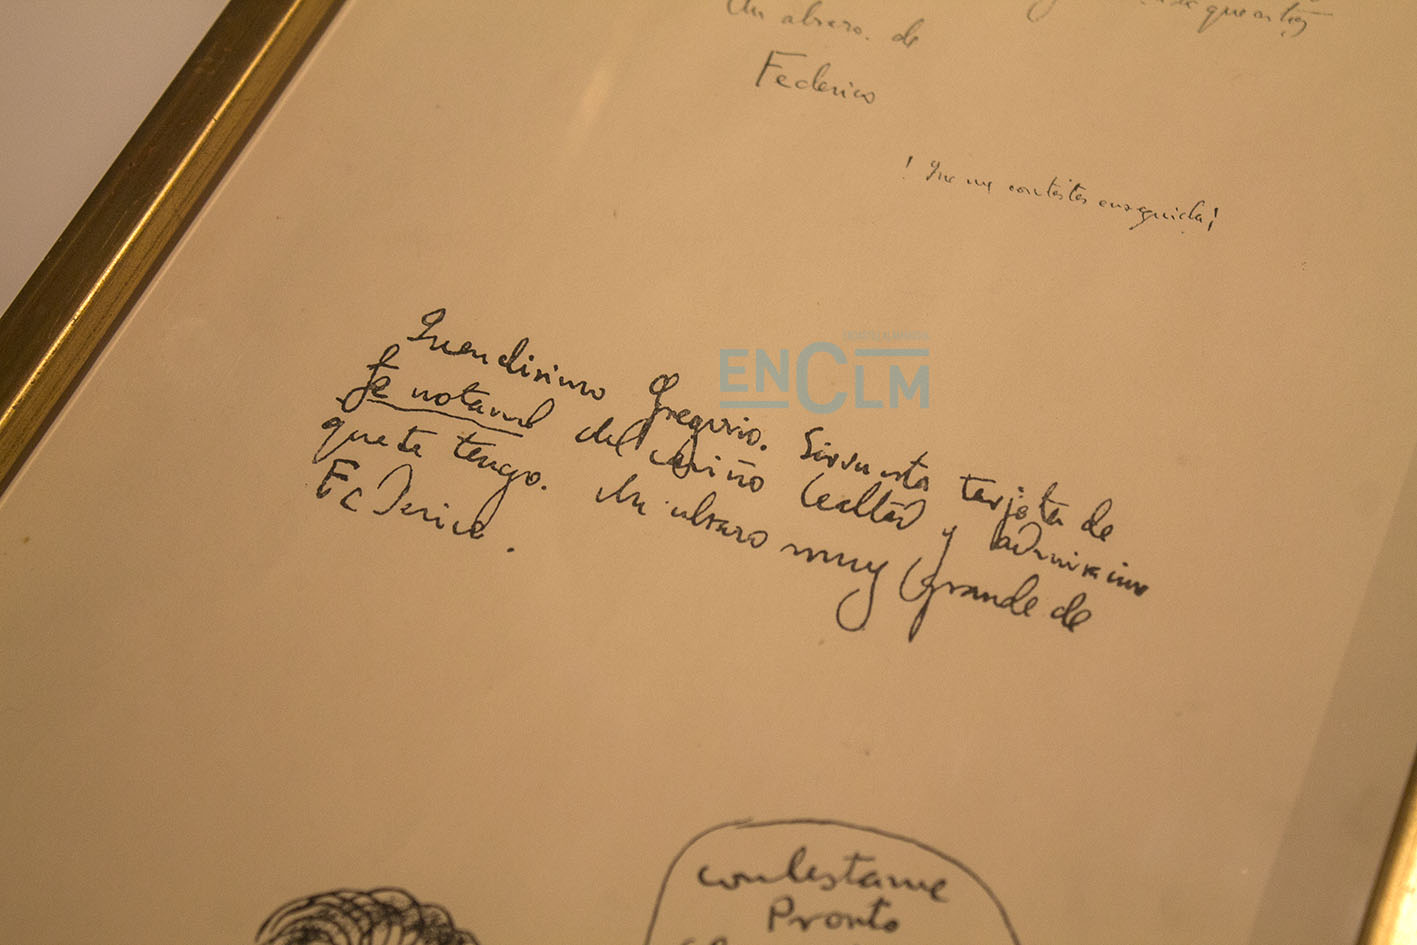 que estés
Un abrazo. de
Federico
! Que me contestes enseguida!
Queridisimo Gregorio. Sirva esta tarjeta de
fe notarial del cariño lealtad y admiracion
que te tengo. Un abrazo muy Grande de
Federico.
ENCLM
contestame
Pronto